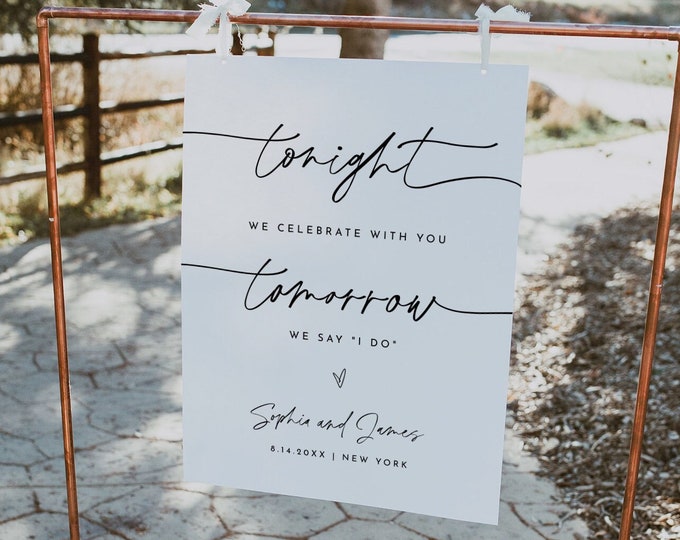 tonight
WE CELEBRATE WITH YOU
tomorrow
WE SAY "I DO"
Sophia and James
8.14.20XX | NEW YORK